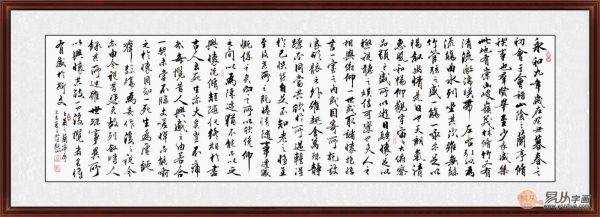 永和九年歲在癸丑暮春之
初會于會稽山陰之蘭亭脩
禊事也羣賢畢至少長咸集
此地有崇山峻領茂林脩竹又有
清流激湍暎帶左右引以為
流觴曲水列坐其次雖無絲
竹管弦之盛一觴一詠亦足以
暢敘幽情是日也天朗氣清
惠風和暢仰觀宇宙之大俯察
品類之盛所以遊目騁懷足以
極視聽之娛信可樂也夫人之
相與俯仰一世或取諸懷抱悟
言一室之內或因寄所託放
浪形骸之外雖趣舍萬殊靜
躁不同當其欣於所遇暫得
於己快然自足不知老之將至
及其所之既惓情隨事遷感
慨係之矣向之所欣俛仰
之間以為陳迹猶不能不以之
興懷況脩短隨化終期於盡
古人云死生亦大矣豈不痛
哉每攬昔人興感之由若合
一契未嘗不臨文嗟悼不能喻
之於懷固知一死生為虛誕
齊彭殤為妄作後之視今
亦由今之視昔悲夫故列敘時人
錄其所述雖世殊事異所
以興懷其致一也後之攬者亦將
有感於斯文
易从字画